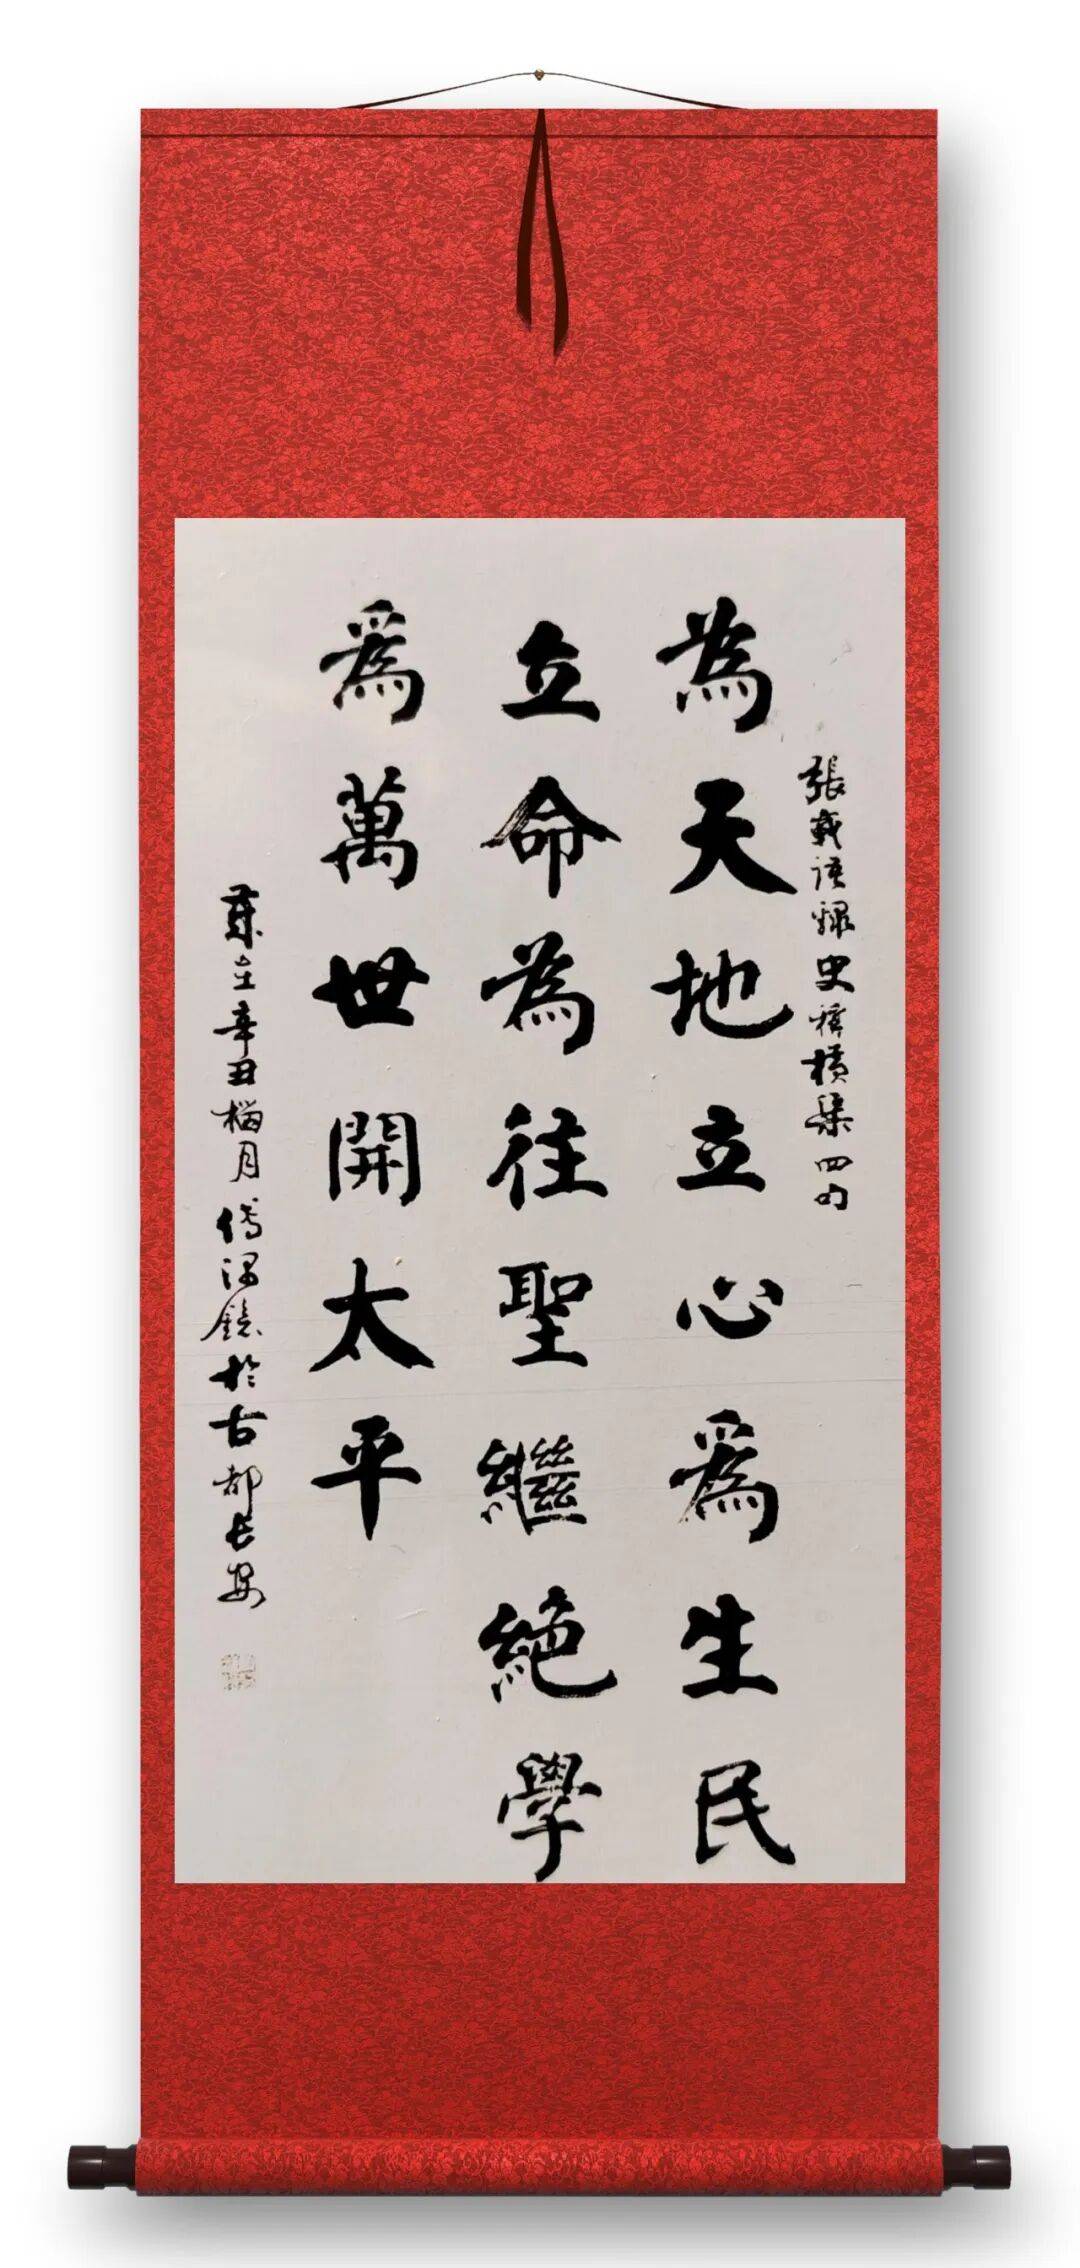 張載語録史稱橫渠四句
為天地立心爲生民
立命為往聖繼絕學
爲萬世開太平
歲在辛丑榴月傅於古都長安